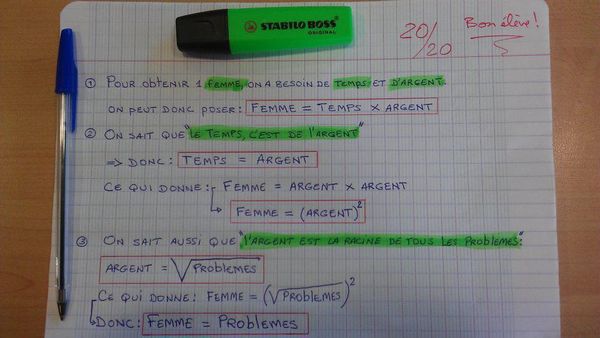 STABILO BOSS
ORIGINAL
20/20
Bon élève!
① POUR OBTENIR 1 FEMME, ON A BESOIN DE TEMPS ET D'ARGENT.
ON PEUT DONC POSER: FEMME = TEMPS X ARGENT
② ON SAIT QUE "LE TEMPS, C'EST DE L'ARGENT"
=> DONC: TEMPS = ARGENT
CE QUI DONNE: FEMME = ARGENT X ARGENT
FEMME = (ARGENT)²
③ ON SAIT AUSSI QUE "L'ARGENT EST LA RACINE DE TOUS LES PROBLEMES":
ARGENT = √PROBLEMES
CE QUI DONNE: FEMME = (√PROBLEMES)²
DONC: FEMME = PROBLEMES